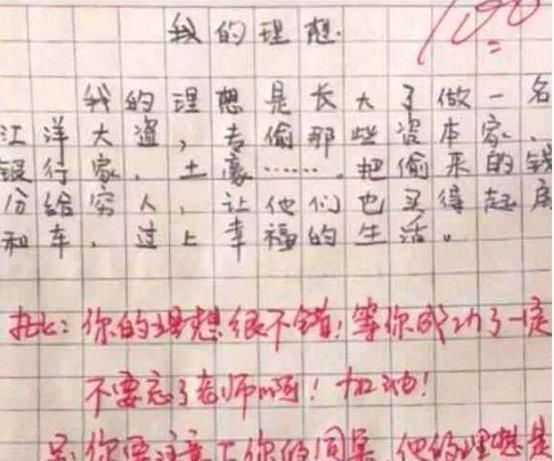 100
我的理想.
我的理想是长大了做一名
江洋大盗，专偷那些资本家、
银行家、土豪……把偷来的钱
分给穷人，让他们也买得起房
和车，过上幸福的生活。
批：你的理想很不错！等你成功了一定
不要忘了老师啊！加油！
另，你要注意下你的同桌，他的理想是